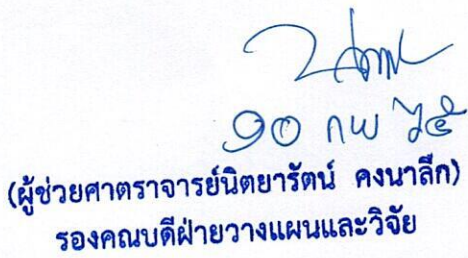 ๑๐ กพ ๖๕
(ผู้ช่วยศาตราจารย์นิตยารัตน์ คงนาลึก)
รองคณบดีฝ่ายวางแผนและวิจัย